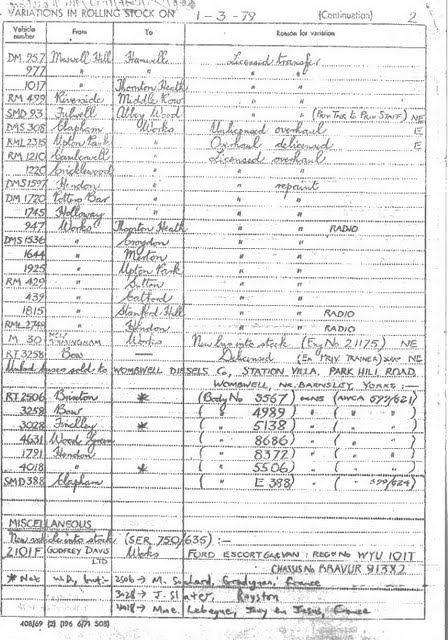 VARIATIONS IN ROLLING STOCK ON 1-3-79 (Continuation) 2
Vehicle number From To Reason for variation
DM 957 Muswell Hill Hanwell Licensed transfer
977 " " " "
1017 " Thornton Heath " "
RM 499 Riverside Middle Row " "
SMD 93 Fulwell Abbey Wood " " (Priv Trnr to Priv Staff) NE
DMS 308 Clapham Works Unlicensed overhaul E
RML 2315 Upton Park " Overhaul delicensed E
RM 1210 Camberwell " Licensed overhaul
1220 Cricklewood " " "
DMS 1597 Hendon " " repaint
DM 1720 Potters Bar " " "
1745 Holloway " " "
947 Works Thornton Heath " " RADIO
DMS 1536 " Croydon " "
1644 " Merton " "
1925 " Upton Park " "
RM 429 " Sutton " "
439 " Catford " "
1815 " Stamford Hill " " RADIO
RML 2748 " Hendon " " RADIO
M 30 MCW BIRMINGHAM Works New bus into stock (Eng No 21175) NE
RT 3258 Bow — Delicensed (Ex PRIV. TRAINER) NE
Unlicd buses sold to WOMBWELL DIESELS Co, STATION VILLA, PARK HILL ROAD
WOMBWELL, NR. BARNSLEY, YORKS :—
RT 2506 Brixton * (Body No 5567) (AWCA 599/621)
3258 Bow ( " 4989 ) " ( " )
3028 Finchley * ( " 5138 ) " ( " )
4631 Wood Green ( " 8686 ) " ( " )
1791 Hendon ( " 8372 ) " ( " )
4018 " * ( " 5506 ) " ( " )
SMD 388 Clapham ( " E 388 ) " ( " 599/624)
MISCELLANEOUS
New vehicle into stock (SER. 750/635) :—
2101F GODFREY DAVIS LTD Works FORD ESCORT VAN : REG NO WYU 101T
CHASSIS NO BBAVUR 91382
* Not W.D, but :- 2506 → M. Godard, France
3028 → J. Slater, Royston
4018 → Mme. Lebegue, Jouy en Josas, France
408/69 (2) (196 6/71 508)